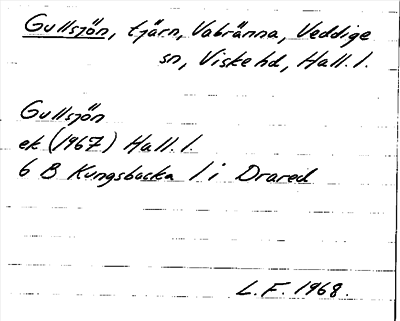 Gullsjön, tjärn, Vabränna, Veddige
sn, Viske hd, Hall. l.
Gullsjön
ek (1967) Hall. l.
6 B Kungsbacka 1 i Drared
L. F. 1968.